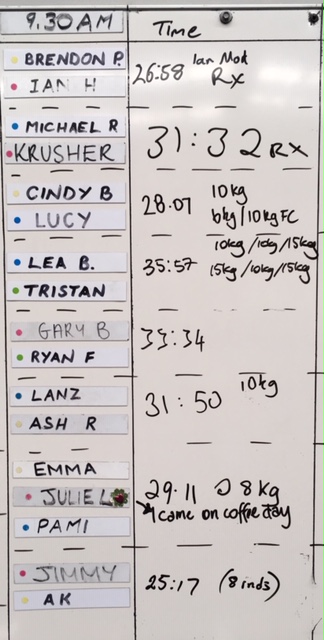 9.30AM Time
BRENDON P. Ian Mod
IAN H 26:58 Rx
MICHAEL R
KRUSHER 31:32 RX
CINDY B 10kg
LUCY 28.07 6kg/10kg FC
10kg/10kg/15kg
LEA B. 35:57 15kg/10kg/15kg
TRISTAN
GARY B 33:34
RYAN F
LANZ 10kg
ASH R 31:50
EMMA
JULIE L 29.11 8kg
came on coffee day
PAMI
JIMMY
AK 25:17 (8inds)